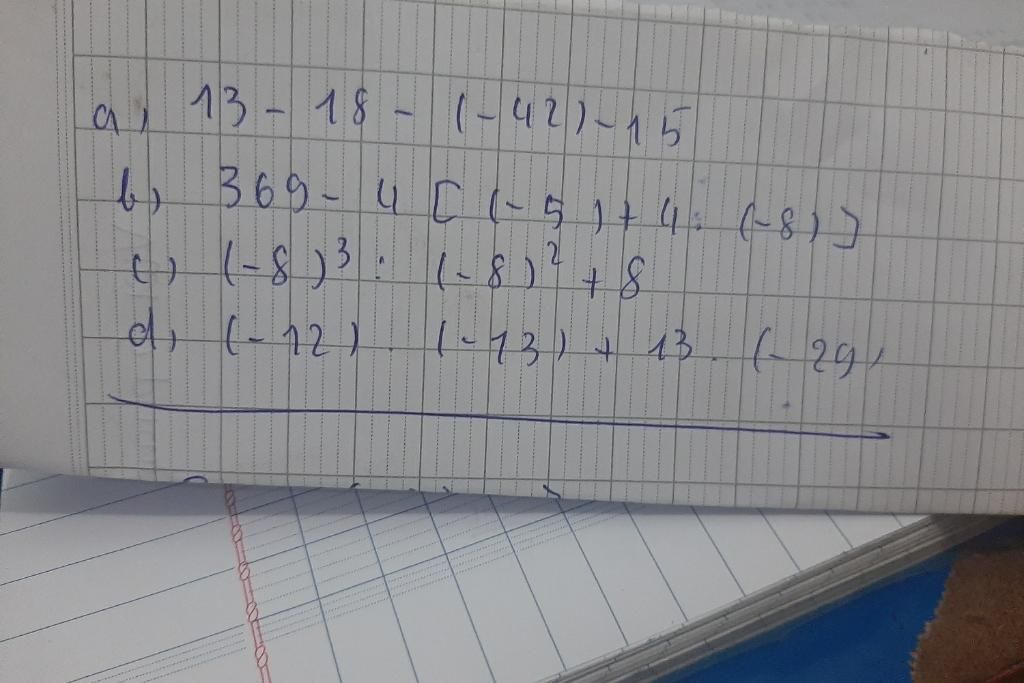 a) 13 - 18 - (-42) - 15
b) 369 - 4 [ (-5) + 4 : (-8) ]
c) (-8)³ : (-8)² + 8
d) (-12) . (-13) + 13 . (-29)